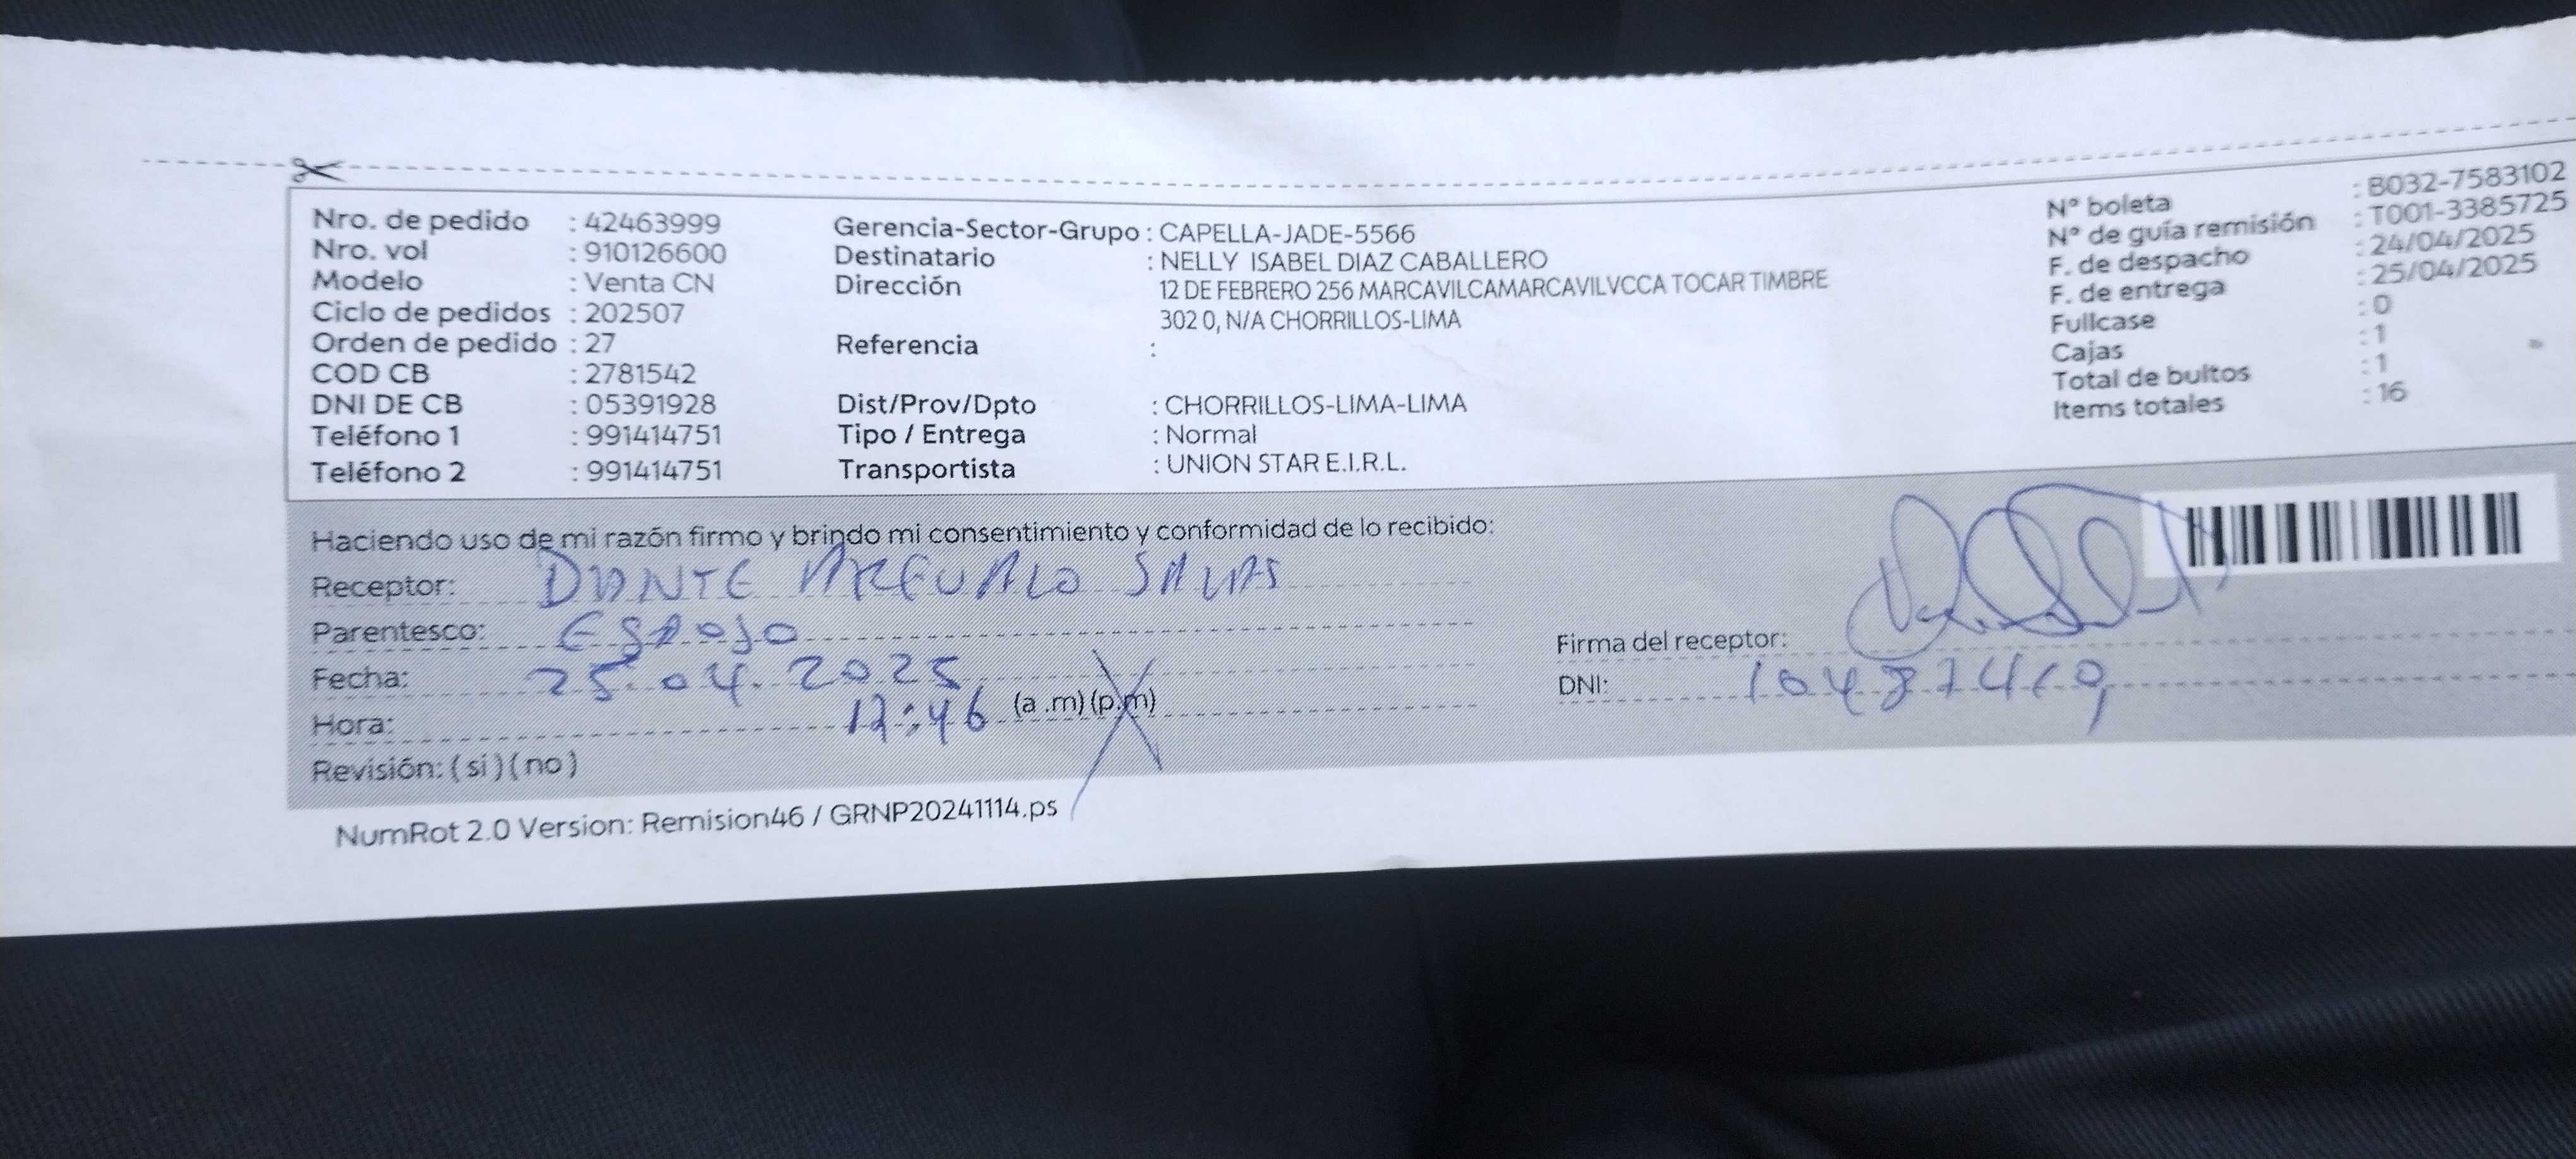 Nro. de pedido : 42463999
Nro. vol : 910126600
Modelo : Venta CN
Ciclo de pedidos : 202507
Orden de pedido : 27
COD CB : 2781542
DNI DE CB : 05391928
Teléfono 1 : 991414751
Teléfono 2 : 991414751
Gerencia-Sector-Grupo : CAPELLA-JADE-5566
Destinatario : NELLY ISABEL DIAZ CABALLERO
Dirección 12 DE FEBRERO 256 MARCAVILCAMARCAVILVCCA TOCAR TIMBRE
302 0, N/A CHORRILLOS-LIMA
Referencia :
Dist/Prov/Dpto : CHORRILLOS-LIMA-LIMA
Tipo / Entrega : Normal
Transportista : UNION STAR E.I.R.L.
N° boleta : B032-7583102
N° de guía remisión : T001-3385725
F. de despacho : 24/04/2025
F. de entrega : 25/04/2025
Fullcase : 0
Cajas : 1
Total de bultos : 1
Items totales : 16
Haciendo uso de mi razón firmo y brindo mi consentimiento y conformidad de lo recibido:
Receptor: DANTE AREVALO SALAS
Parentesco: ESPOSO
Fecha: 25.04.2025
Hora: 12:46 (a .m)(p.m)
Revisión: ( si )( no )
Firma del receptor:
DNI:
NumRot 2.0 Version: Remision46 / GRNP20241114.ps